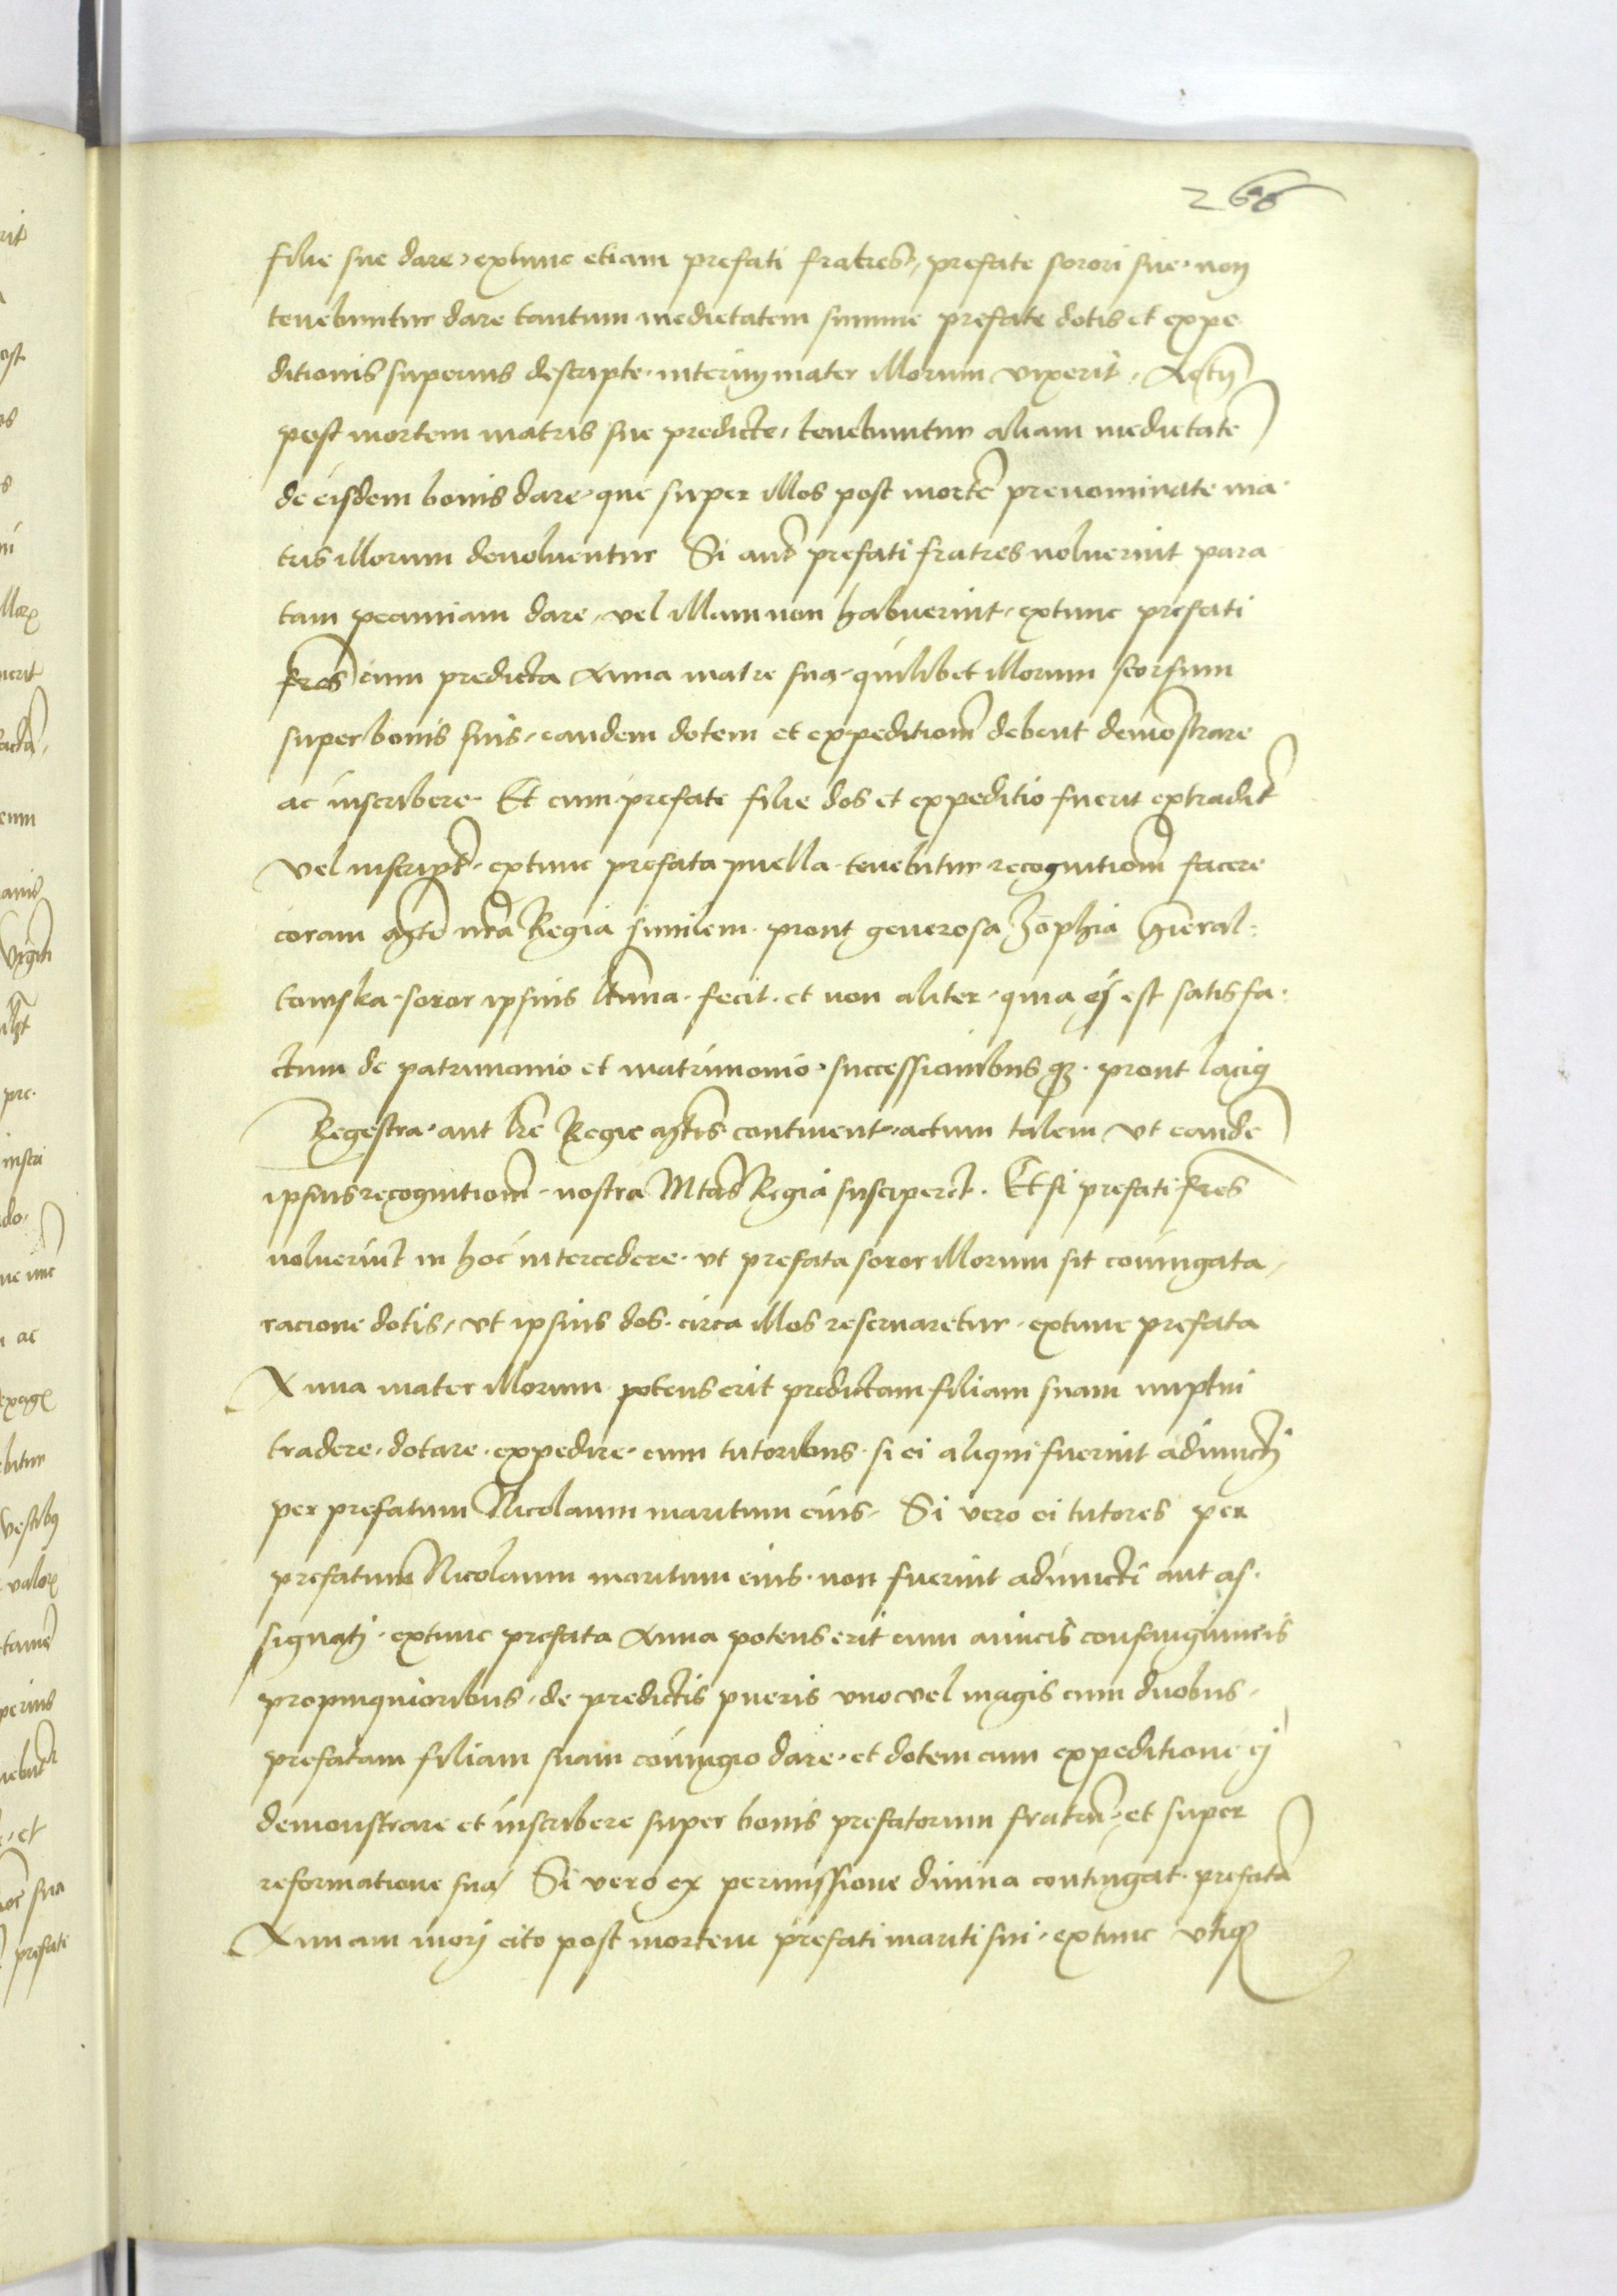 266
filie sue dare, extunc etiam prefati fratres, prefate sorori sue non
tenebuntur dare tantum medietatem summe prefate dotis et expe
ditionis superius descripte interim mater illorum vixerit,
post mortem matris sue predicte, tenebuntur aliam medietatē
de eisdem bonis dare, que super illos post mortē prenominate ma
tris illorum devoluentur Si aut prefati fratres noluerint para
tam pecuniam dare, vel illam non habuerint, extunc prefati
fres cum predicta Anna matre sua, quilibet illorum seorsum
super bonis suis, eandem dotem et expeditiom debent demōstrare
ac inscribere. Et cum prefate filie dos et expeditio fuerit extradit
vel inscript, extunc prefata puella tenebitur recognitiom facere
coram mte nra Regia similem prout generosa Zophia Hieral
towska soror ipsius fecit et non aliter, quia ei est satisfa
ctum de patrimonio et matrimonio successionibusq, prout lacius
Regestra aut lre Regie mtis continent, actum talem vt eandē
ipsius recognitiom nostra Mtas Regia susciperet. Et si prefati fres
noluerint in hoc intercedere, vt prefata soror illorum sit coniugata,
racione dotis, vt ipsius dos circa illos reseruaretur, extunc prefata
Anna mater illorum potens erit predictam filiam suam nuptui
tradere, dotare, expedire, cum tutoribus si ei aliqui fuerint adiuncti
per prefatum Nicolaum maritum eius, Si vero ei tutores per
prefatum Nicolaum maritum eius non fuerint adiuncti aut as
signati, extunc prefata Anna potens erit cum amicis consanguineis
propinquioribus, de predictis pueris vno vel magis cum duobus,
prefatam filiam suam coniugio dare, et dotem cum expeditione ei
demonstrare et inscribere super bonis prefatorum fratrū et super
reformatione sua Si vero ex permissione diuina contingat prefatā
Annam mori cito post mortem prefati mariti sui, extunc vtiq